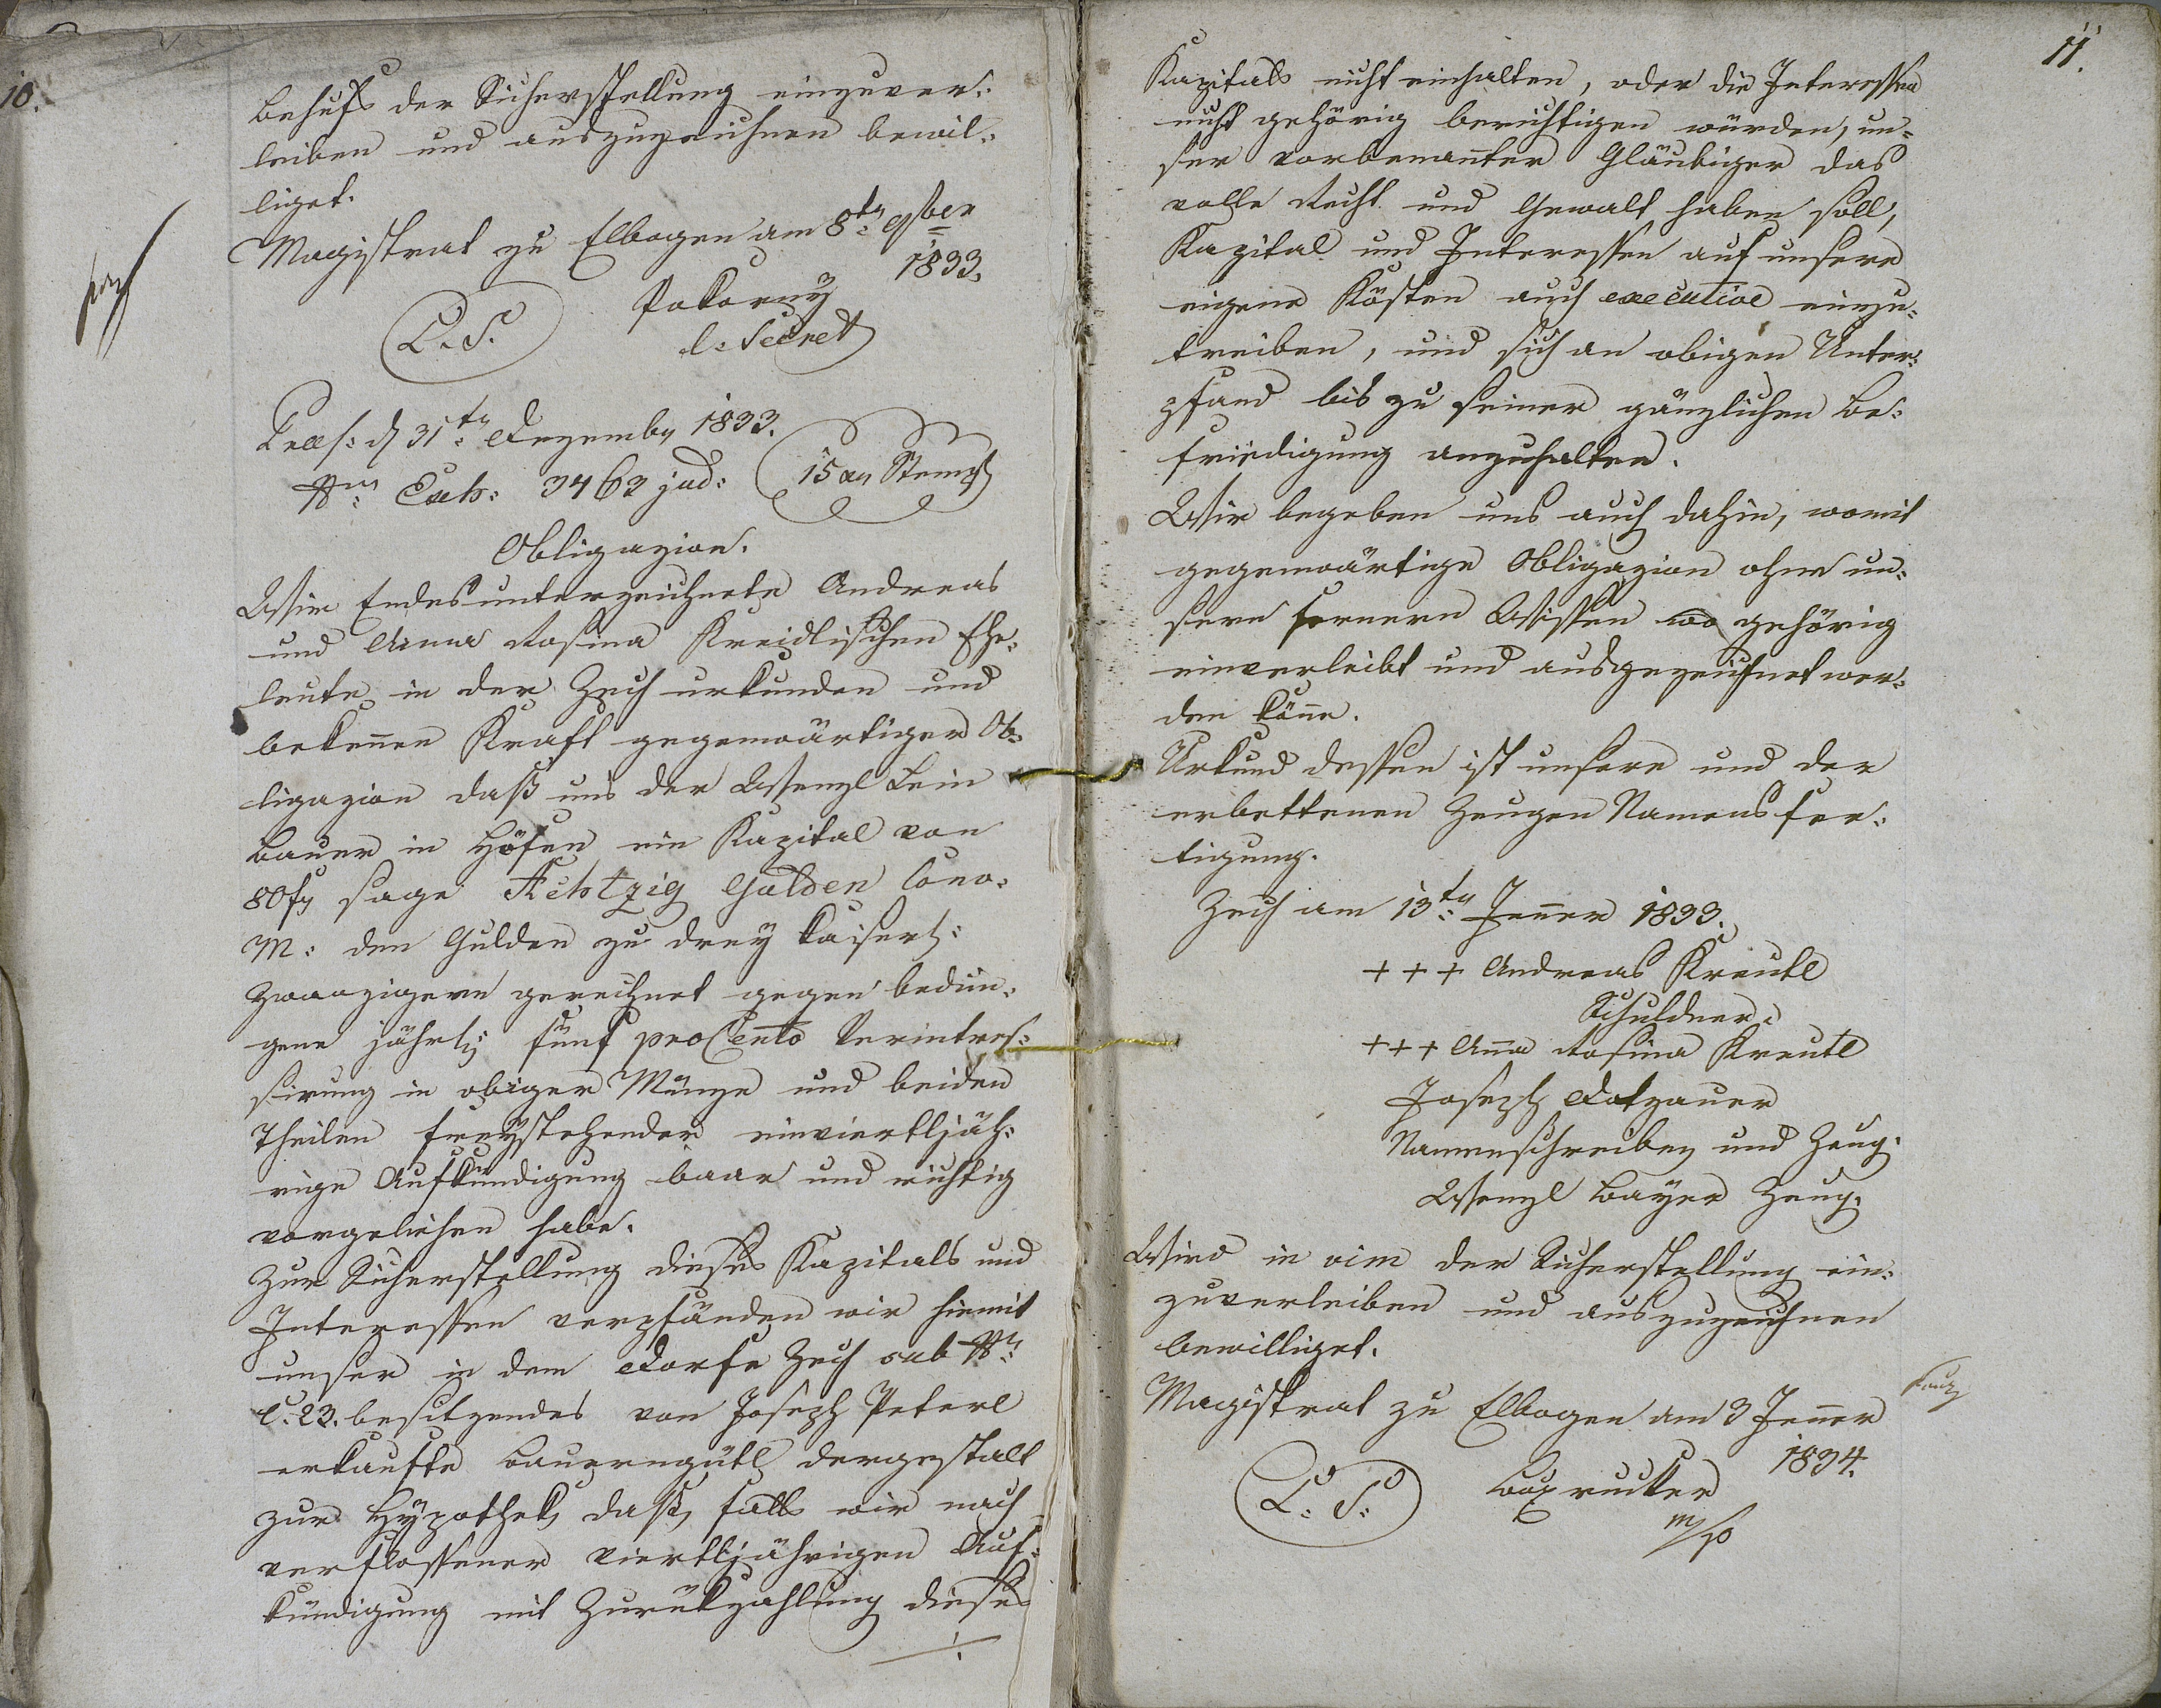 10.
behufs der Sicherstellung einzuver:
leiben und auszuzeichnen bewil:
liget.
Magistrat zu Elbogen am 8t: 9ber
1833.
L. S. Pokorny
Secret
Praes: d 31t: Dezember 1833.
Nro: Exh: 3463 jud: 15 xr Stempl
Obligazion.
Wir Endesunterzeichnete Andreas
und Anna Rosina Kreidlischen Ehe:
leute in der Zech urkunden und
bekennen Kraft gegenwärtiger Ob:
ligazion daß uns der Wenzl Lein
Bauer in Höfen ein Kapital von
80 fr sage Achtzig Gulden Conv:
M: den Gulden zu drey kaiserl:
Zwanzigern gerechnet gegen bedun:
gene jährl: fünf proCento Verintres:
sirung in obiger Münze und beiden
Theilen freystehender einviertljäh:
rige Aufkündigung baar und richtig
vorgeliehen habe.
Zur Sicherstellung dieses Kapitals und
Interessen verpfänden wir hiemit
unser in dem Dorfe Zech sub Nr:
C: 23. besitzendes von Joseph Peterl
erkaufte Bauerngütl dergestalt
zur Hypothek, daß, falls wir nach
verflossener viertljährigen Auf:
kündigung mit Zurükzahlung dieses
11.
Kapitals nicht einhalten, oder die Interessen
nicht gehörig berichtigen würden, un:
ser vorbenannter Gläubiger das
volle Recht und Gewalt haben soll,
Kapital und Interessen auf unsere
eigene Kösten auch executive einzu:
treiben, und sich an obigen Unter:
pfand bis zu seiner gänzlichen Be:
friedigung anzuhalten.
Wir begeben uns auch dahin, womit
gegenwärtige Obligazion ohne un:
sern fernern Wissen wo gehörig
einverleibt und ausgezeichnet wer:
den könne.
Urkund dessen ist unsere und der
erbettenen Zeugen Namensfer:
tigung.
Zech am 13t: Jenner 1833.
+++ Andreas Kreutl
Schuldner.
+++ Anna Rosina Kreutl
Joseph Dotzauer
Namenschreiber und Zeug.
Wenzl Bayer Zeug.
Wird in vim der Sicherstellung ein:
zuverleiben und auszuzeichnen
bewilliget.
Magistrat zu Elbogen am 3 Jenner
1834.
L: S:
m/p